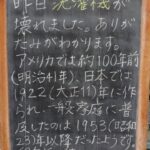 昨日洗濯機が
壊れました。ありが
たみがわかります。
アメリカでは約100年前
(明治41年)、日本では
1922(大正11)年に作
られ、一般家庭に普
及したのは1953(昭和
28)年以降だったようです。